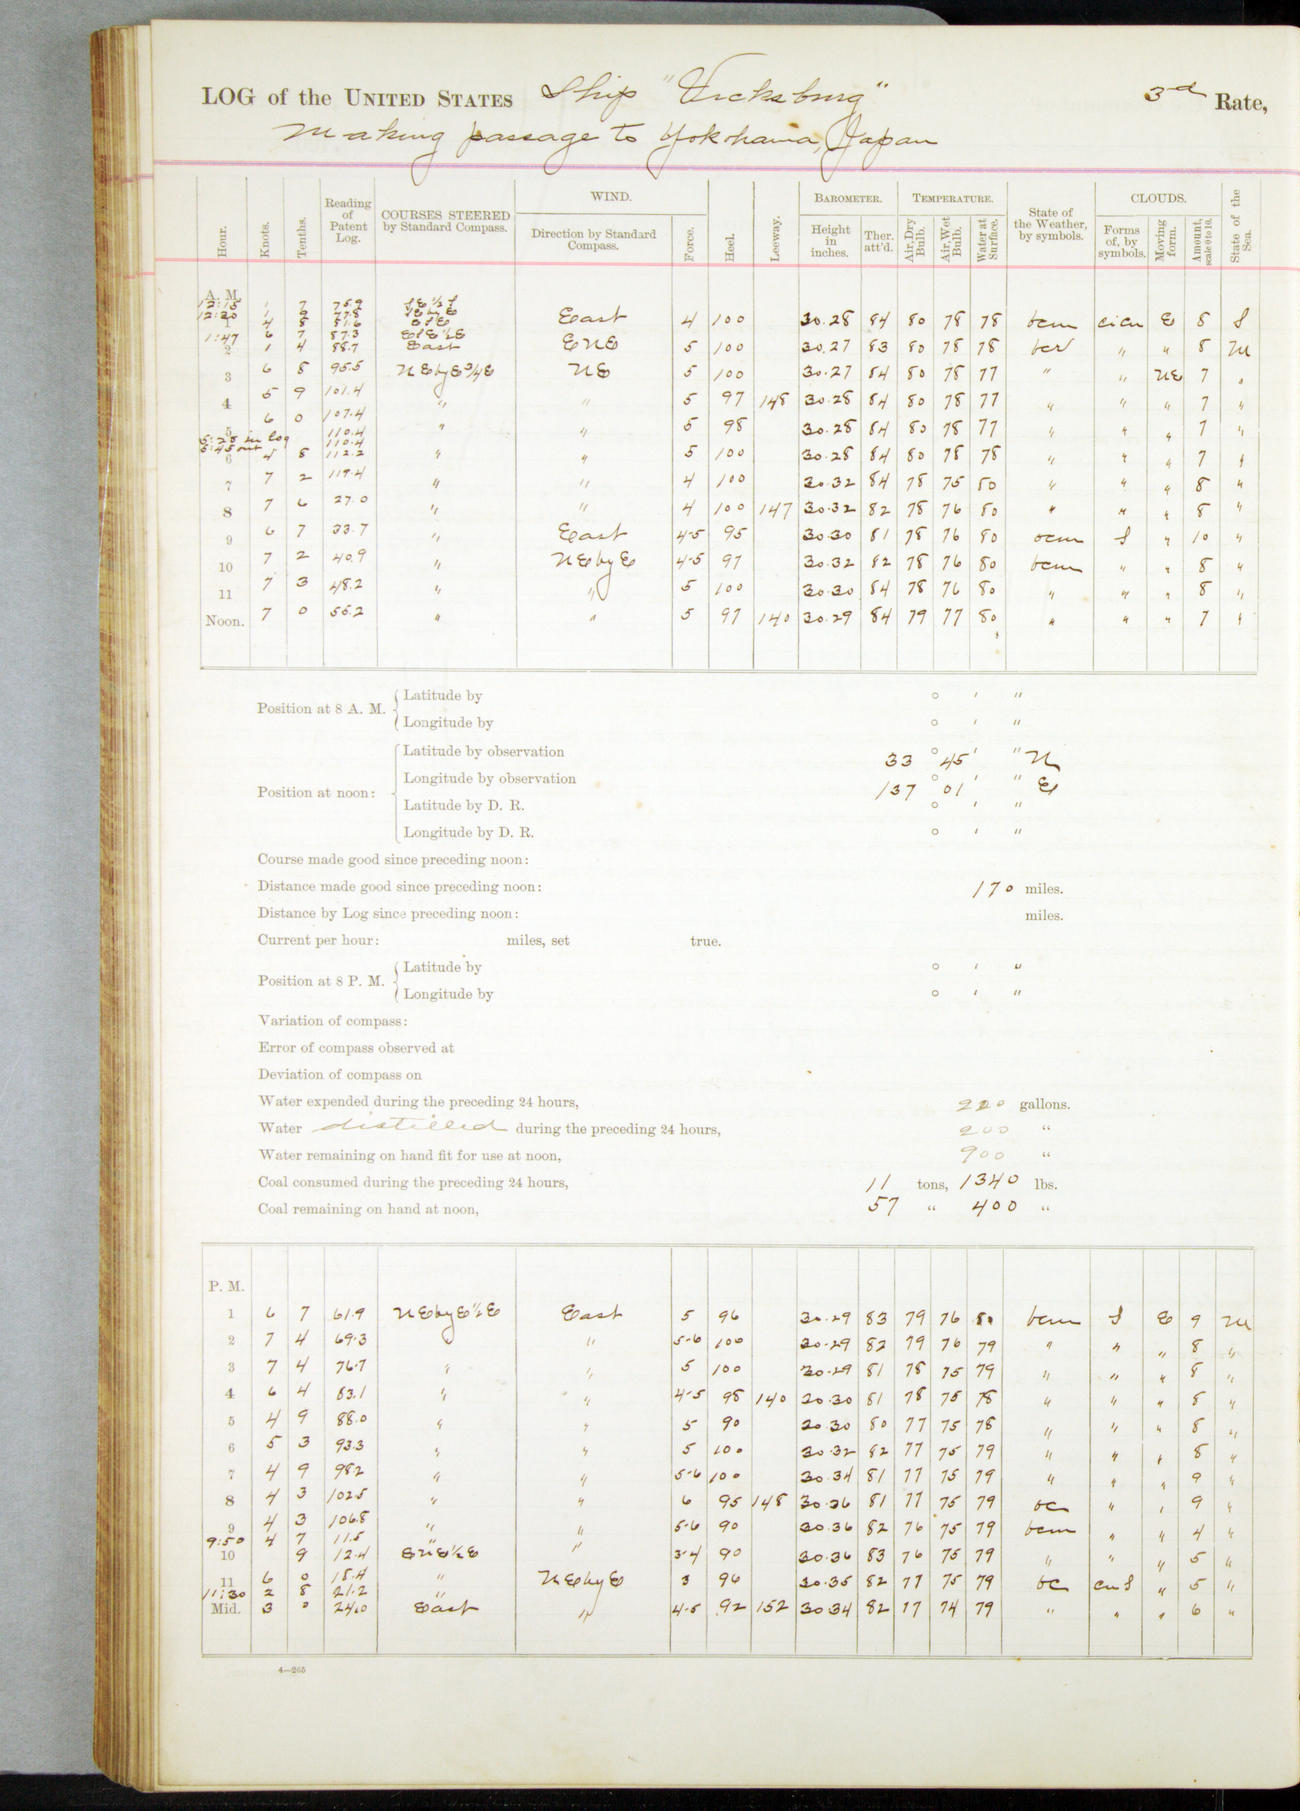 LOG of the UNITED STATES Ship "Vicksburg" 3rd Rate,
Making passage to Yokohama, Japan
Hour. Knots. Tenths. Reading of Patent Log. COURSES STEERED by Standard Compass. WIND. Direction by Standard Compass. Force. Heel. Leeway. BAROMETER. Height in inches. Ther. att'd. TEMPERATURE. Air, Dry Bulb. Air, Wet Bulb. Water at Surface. State of the Weather, by symbols. CLOUDS. Forms of, by symbols. Moving form. Amount, scale 0 to 10. State of the Sea.
A. M.
12:15 1 7 75.9 SE ½ S
12:30 1 77.8 SE by E
1 4 8 81.6 ESE East 4 100 30.28 84 80 78 78 bcm cicu E 8 S
1:47 6 7 87.3 ESE ½ E
2 1 4 88.7 East ENE 5 100 30.27 83 80 78 78 " " 8 M
3 6 8 95.5 NE by E ¾ E NE 5 100 30.27 84 80 78 77 " " NE 7 "
4 5 9 101.4 " " 5 97 148 30.28 84 80 78 77 " " " 7 "
5 6 0 107.4 " " 5 98 30.28 84 80 78 77 " " " 7 "
5:28 in log 110.4
5:45 out 110.4
6 4 8 112.2 " " 5 100 30.28 84 80 78 78 " " " 7 "
7 7 2 119.4 " " 4 100 30.32 84 78 75 80 " " " 8 "
8 7 6 27.0 " " 4 100 147 30.32 82 78 76 80 " " " 8 "
9 6 7 33.7 " East 4-5 95 30.30 81 78 76 80 ocm S " 10 "
10 7 2 40.9 " NE by E 4-5 97 30.32 82 78 76 80 bcm " " 8 "
11 7 3 48.2 " " 5 100 30.30 84 78 76 80 " " " 8 "
Noon. 7 0 55.2 " " 5 97 140 30.29 84 79 77 80 " " " 7 "
Position at 8 A. M. Latitude by ° ' "
Longitude by ° ' "
Position at noon: Latitude by observation 33 ° 45 ' " N
Longitude by observation 137 ° 01 ' " E
Latitude by D. R. ° ' "
Longitude by D. R. ° ' "
Course made good since preceding noon:
Distance made good since preceding noon: 170 miles.
Distance by Log since preceding noon: miles.
Current per hour: miles, set true.
Position at 8 P. M. Latitude by ° ' "
Longitude by ° ' "
Variation of compass:
Error of compass observed at
Deviation of compass on
Water expended during the preceding 24 hours, 220 gallons.
Water distilled during the preceding 24 hours, 200 "
Water remaining on hand fit for use at noon, 900 "
Coal consumed during the preceding 24 hours, 11 tons, 1340 lbs.
Coal remaining on hand at noon, 57 " 400 "
P. M.
1 6 7 61.9 NE by E ½ E East 5 96 30.29 83 79 76 80 bcm S E 9 M
2 7 4 69.3 " 5-6 100 30.29 82 79 76 79 " " " 8 "
3 7 4 76.7 " " 5 100 30.29 81 78 75 79 " " " 8 "
4 6 4 83.1 " " 4-5 98 140 30.30 81 78 75 78 " " " 8 "
5 4 9 88.0 " " 5 90 30.30 80 77 75 78 " " " 8 "
6 5 3 93.3 " " 5 100 30.32 82 77 75 79 " " " 8 "
7 4 9 98.2 " " 5-6 100 30.34 81 77 75 79 " " " 9 "
8 4 3 102.5 " " 6 95 148 30.36 81 77 75 79 oc " " 9 "
9 4 3 106.8 " " 5-6 90 30.36 82 76 75 79 bcm " " 4 "
9:50 4 7 11.5 "
10 9 12.4 ENE ½ E " 3-4 90 30.36 83 76 75 79 " " " 5 "
11 6 0 18.4 " NE by E 3 96 30.35 82 77 75 79 bc cuS " 5 "
11:30 2 8 21.2 "
Mid. 3 0 24.0 East " 4-5 92 152 30.34 82 77 74 79 " " " 6 "
4—265